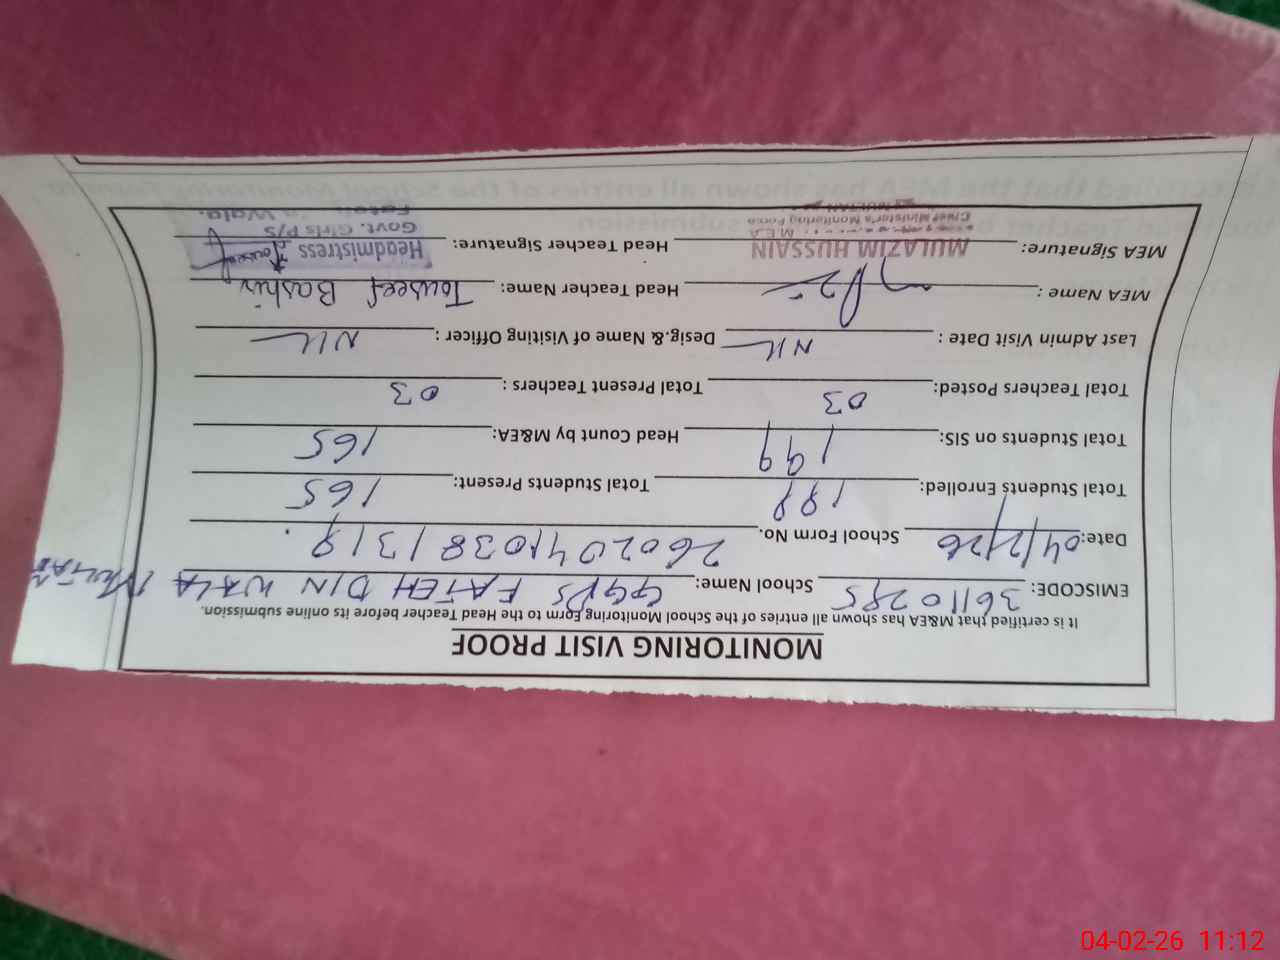 MONITORING VISIT PROOF
It is certified that M&EA has shown all entries of the School Monitoring Form to the Head Teacher before its online submission.
EMISCODE: 36110295 School Name: GGPS FATEH DIN WALA MULTAN
Date: 04/2/26 School Form No. 26020410381319
Total Students Enrolled: 199 Total Students Present: 165
Total Students on SIS: 199 Head Count by M&EA: 165
Total Teachers Posted: 03 Total Present Teachers : 03
Last Admin Visit Date : Nil Desig.& Name of Visiting Officer : Nil
MEA Name : Head Teacher Name: Touseef Bashir
MEA Signature: MULAZIM HUSSAIN Head Teacher Signature: Headmistress
M.E.A Govt. Girls P/S
Chief Minister's Monitoring Force Wala.
MULTAN
certified that the MEA has shown all entries of the School Monitoring
the Head Teacher submission.
04-02-26 11:12